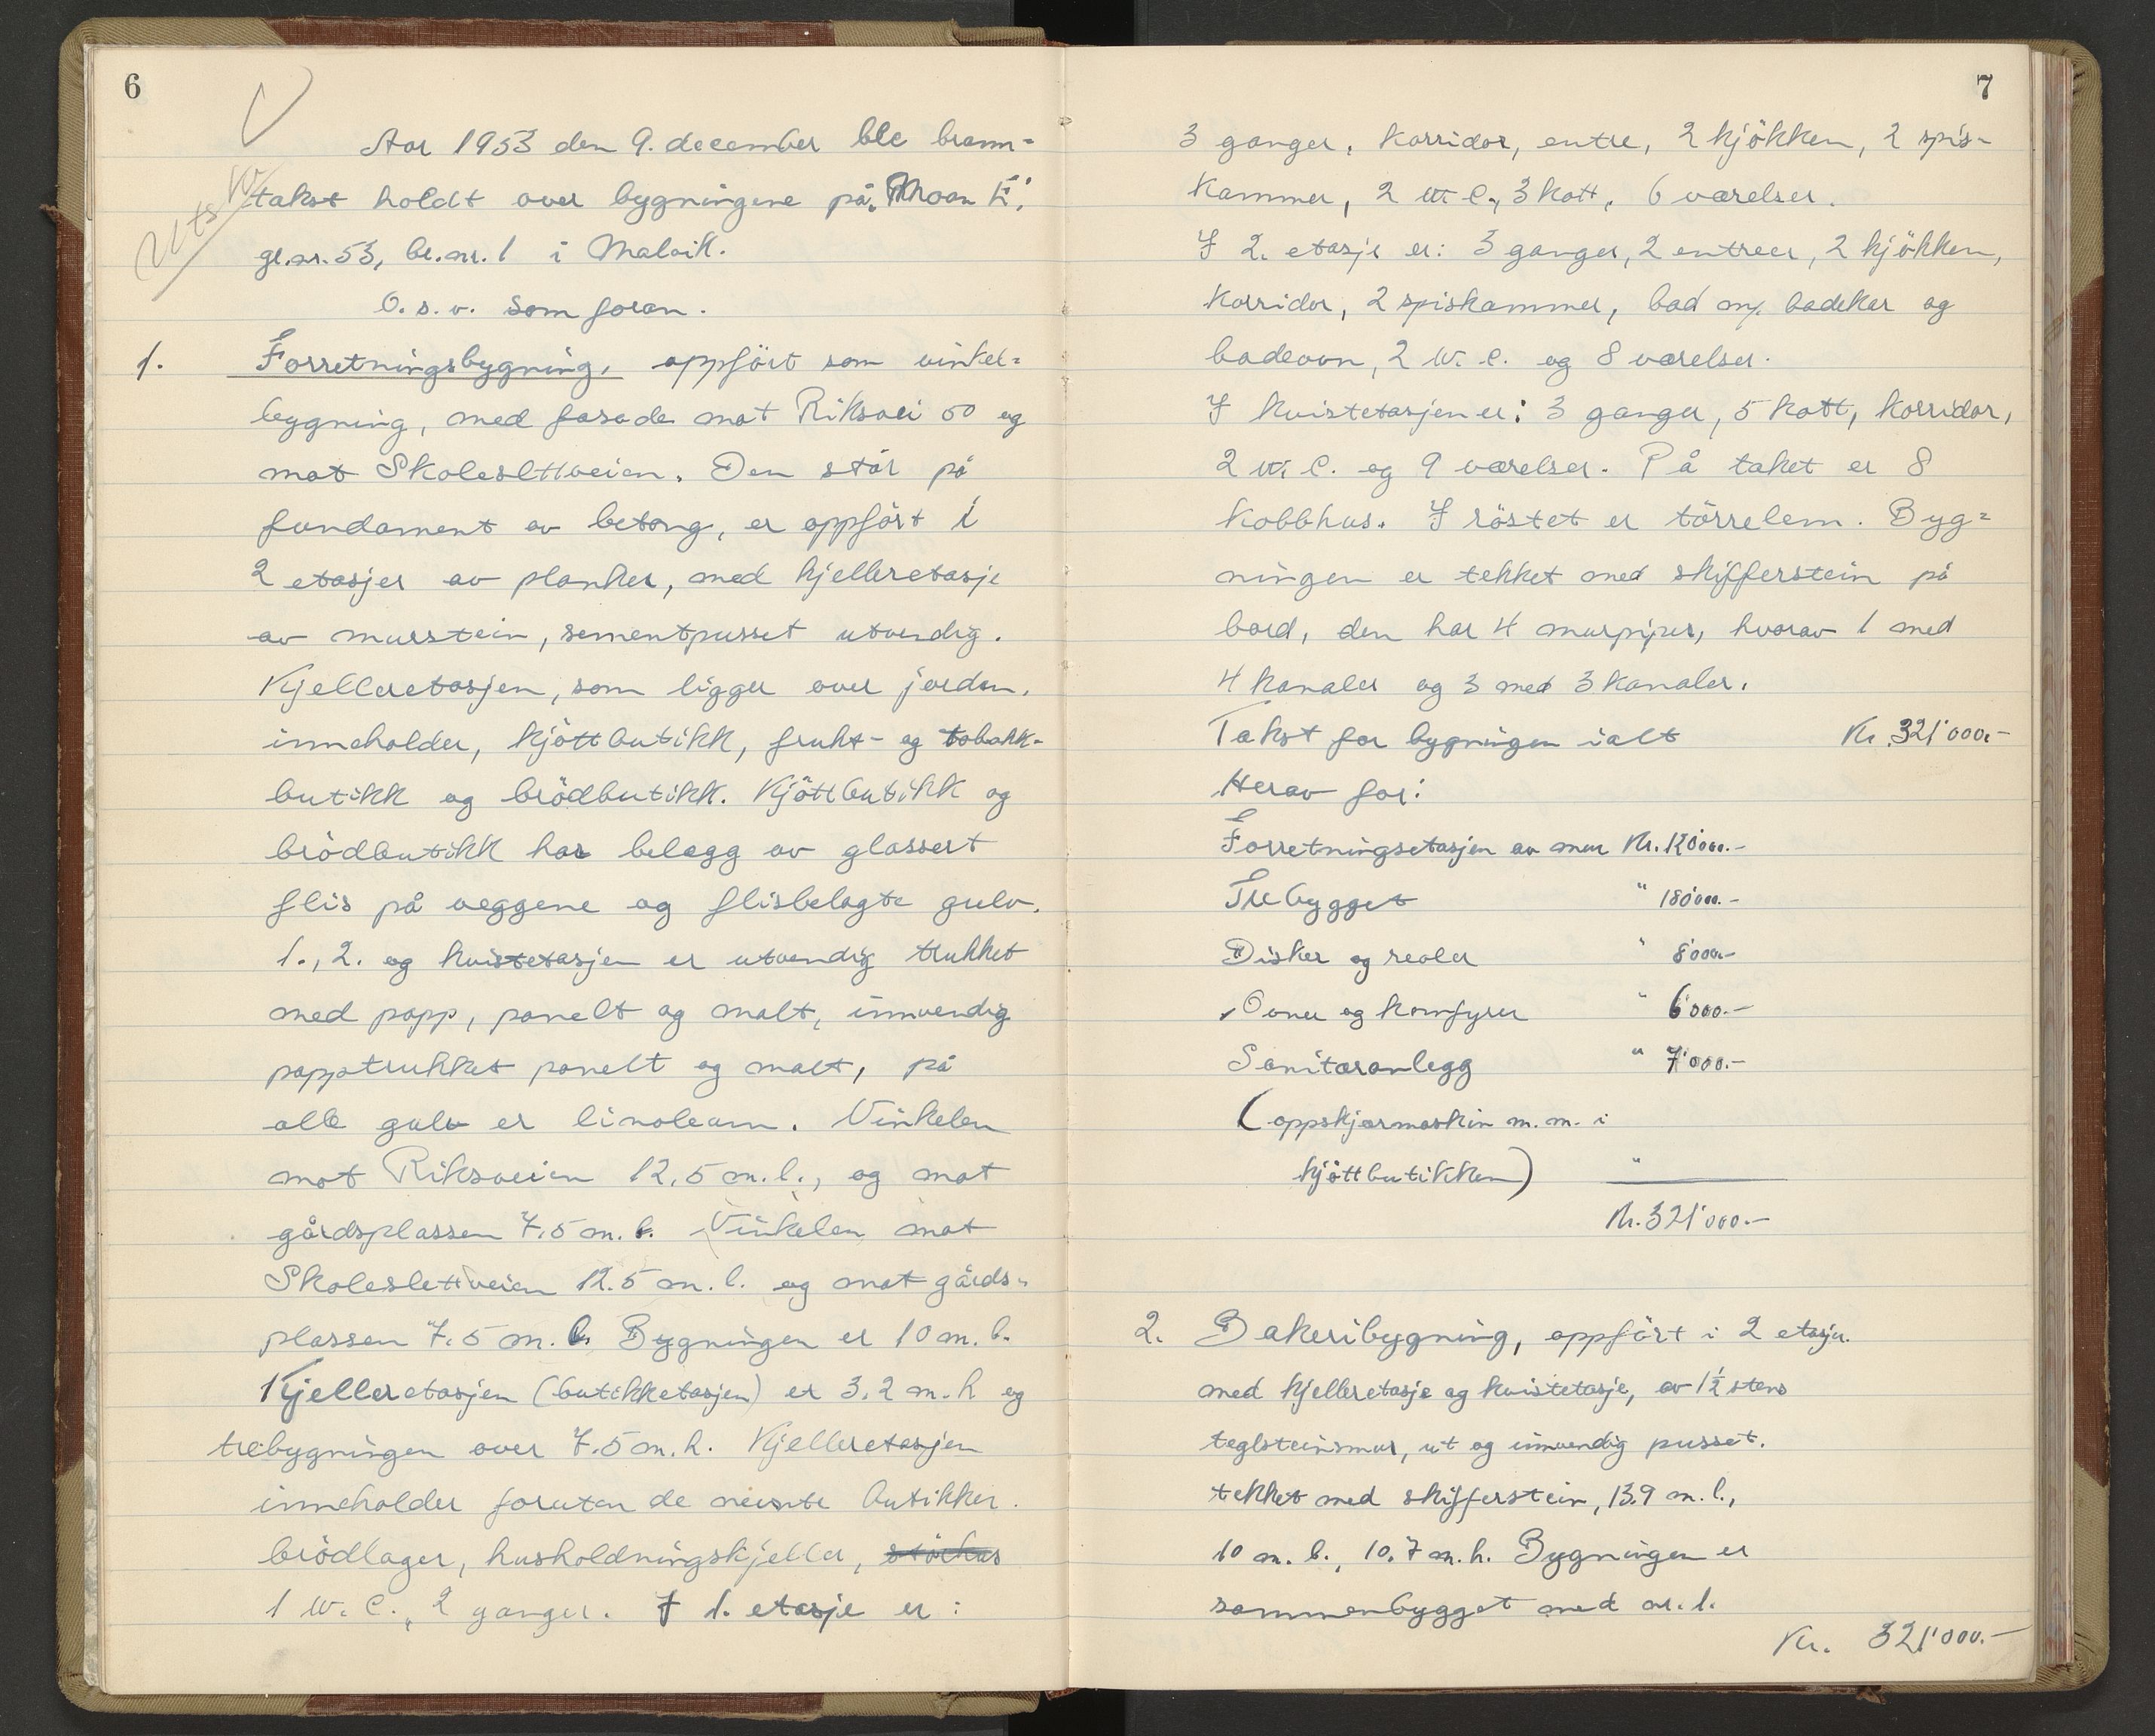 6
Utskr.
Aar 1953 den 9. december ble brann=
takst holdt over bygningene på "Moan E",
gl.nr. 53, br.nr. 1 i Malvik.
O. s. v. som foran.
1. Forretningsbygning, oppført som vinkel=
bygning, med fasade mot Riksvei 50 og
mot Skoleslettveien. Den står på
fundament av betong, er oppført i
2 etasjer av planker, med kjelleretasje
av murstein, sementpusset utvendig.
Kjelleretasjen, som ligger over jorden,
inneholder, kjöttbutikk, frukt- og tobakk-
butikk og brödbutikk. Kjöttbutikk og
brödbutikk har belegg av glassert
flis på veggene og flisbelagte gulv.
1., 2. og kvistetasjen er utvendig trukket
med papp, panelt og malt, innvendig
papptrukket panelt og malt, på
alle gulv er linoleum. Vinkelen
mot Riksveien 12,5 m. l., og mot
gårdsplassen 7.5 m. l. Vinkelen mot
Skoleslettveien 12.5 m. l. og mot gårds-
plassen 7.5 m. l. Bygningen er 10 m. b.
Kjelleretasjen (butikketasjen) er 3.2 m. h og
trebygningen over 7.5 m. h. Kjelleretasjen
inneholder foruten de nevnte butikker.
brödlager, husholdningskjeller, störhus
1 W. C., 2 ganger. I 1. etasje er :
7
3 ganger, korridor, entre, 2 kjökken, 2 spis-
kammer, 2 W. C., 3 kott, 6 værelser.
I 2. etasje er: 3 ganger, 2 entreer, 2 kjökken,
korridor, 2 spiskammer, bad m/. badekar og
badeovn, 2 W. C. og 8 værelser.
I kvistetasjen er: 3 ganger, 5 kott, korridor,
2 W. C. og 9 værelser. På taket er 8
kobbhus. I röstet er törrelem. Byg=
ningen er tekket med skifferstein på
bord, den har 4 murpiper, hvorav 1 med
4 kanaler og 3 med 3 kanaler.
Takst for bygningen ialt Kr. 321'000.-
Herav for:
Forretningsetasjen av mur Kr. 120'000.-
Trebygget " 180'000.-
Disker og reoler " 8'000.-
Ovner og komfyrer " 6'000.-
Sanitæranlegg " 7'000.-
(oppskjærmaskin m. m. i
kjöttbutikken) "
Kr. 321'000.-
2. Bakeribygning, oppført i 2 etasjer.
med kjelleretasje og kvistetasje, av 1½ stens
teglsteinsmur, ut og innvendig pusset.
tekket med skifferstein, 13.9 m. l.,
10 m. b., 10.7 m. h. Bygningen er
sammenbygget med nr. 1.
Kr. 321'000.-